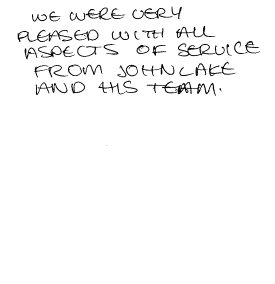 WE WERE VERY
PLEASED WITH ALL
ASPECTS OF SERVICE
FROM JOHN LAKE
AND HIS TEAM.